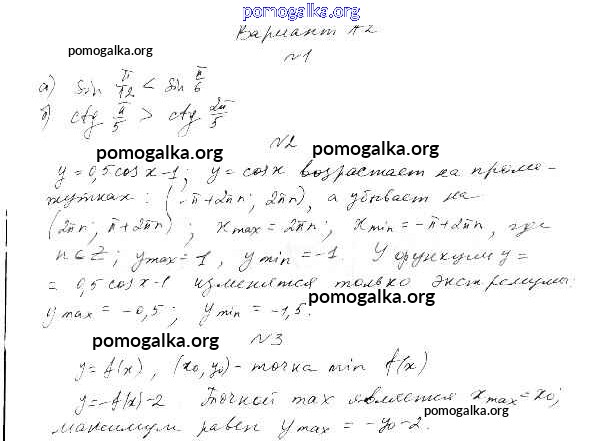 pomogalka.org
Вариант А2
pomogalka.org
№1
а) sin π/12 < sin π/6
б) ctg π/5 > ctg 2π/5
№2
pomogalka.org pomogalka.org
y = 0,5cos x - 1; y = cos x возрастает на проме-
жутках: (-π+2πn; 2πn), а убывает на
(2πn; π+2πn); xmax = 2πn; xmin = -π+2πn, где
n∈Z; ymax = 1, ymin = -1. У функции y =
= 0,5cos x-1 изменятся только экстремумы:
pomogalka.org
ymax = -0,5; ymin = -1,5.
pomogalka.org
№3
y = f(x), (x0, y0) - точка min f(x)
y = -f(x)-2. Точкой max является xmax = x0;
pomogalka.org
максимум равен ymax = -y0-2.